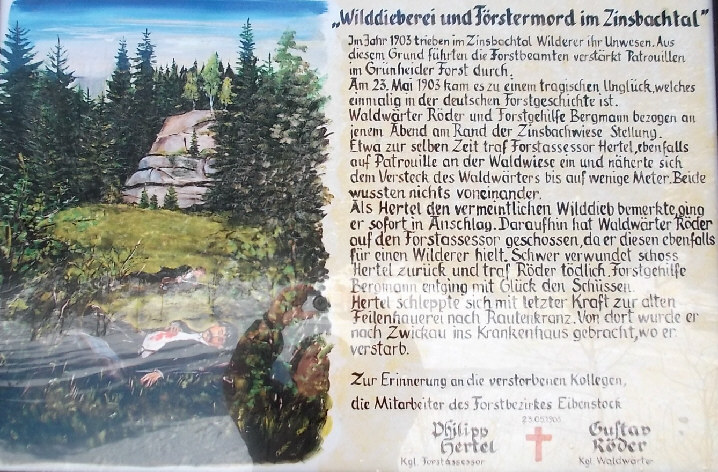 „Wilddieberei und Förstermord im Zinsbachtal"
Im Jahr 1903 trieben im Zinsbachtal Wilderer ihr Unwesen. Aus
diesem Grund führten die Forstbeamten verstärkt Patrouillen
im Grünheider Forst durch.
Am 23. Mai 1903 kam es zu einem tragischen Unglück, welches
einmalig in der deutschen Forstgeschichte ist.
Waldwärter Röder und Forstgehilfe Bergmann bezogen an
jenem Abend am Rand der Zinsbachwiese Stellung.
Etwa zur selben Zeit traf Forstassessor Hertel, ebenfalls
auf Patrouille an der Waldwiese ein und näherte sich
dem Versteck des Waldwärters bis auf wenige Meter. Beide
wussten nichts voneinander.
Als Hertel den vermeintlichen Wilddieb bemerkte, ging
er sofort in Anschlag. Daraufhin hat Waldwärter Röder
auf den Forstassessor geschossen, da er diesen ebenfalls
für einen Wilderer hielt. Schwer verwundet schoss
Hertel zurück und traf Röder tödlich. Forstgehilfe
Bergmann entging mit Glück den Schüssen.
Hertel schleppte sich mit letzter Kraft zur alten
Feilenhauerei nach Rautenkranz. Von dort wurde er
nach Zwickau ins Krankenhaus gebracht, wo er
verstarb.
Zur Erinnerung an die verstorbenen Kollegen,
die Mitarbeiter des Forstbezirkes Eibenstock
Philipp
Hertel
Kgl. Forstassessor
23.05.1903
Gustav
Röder
Kgl. Waldwärter